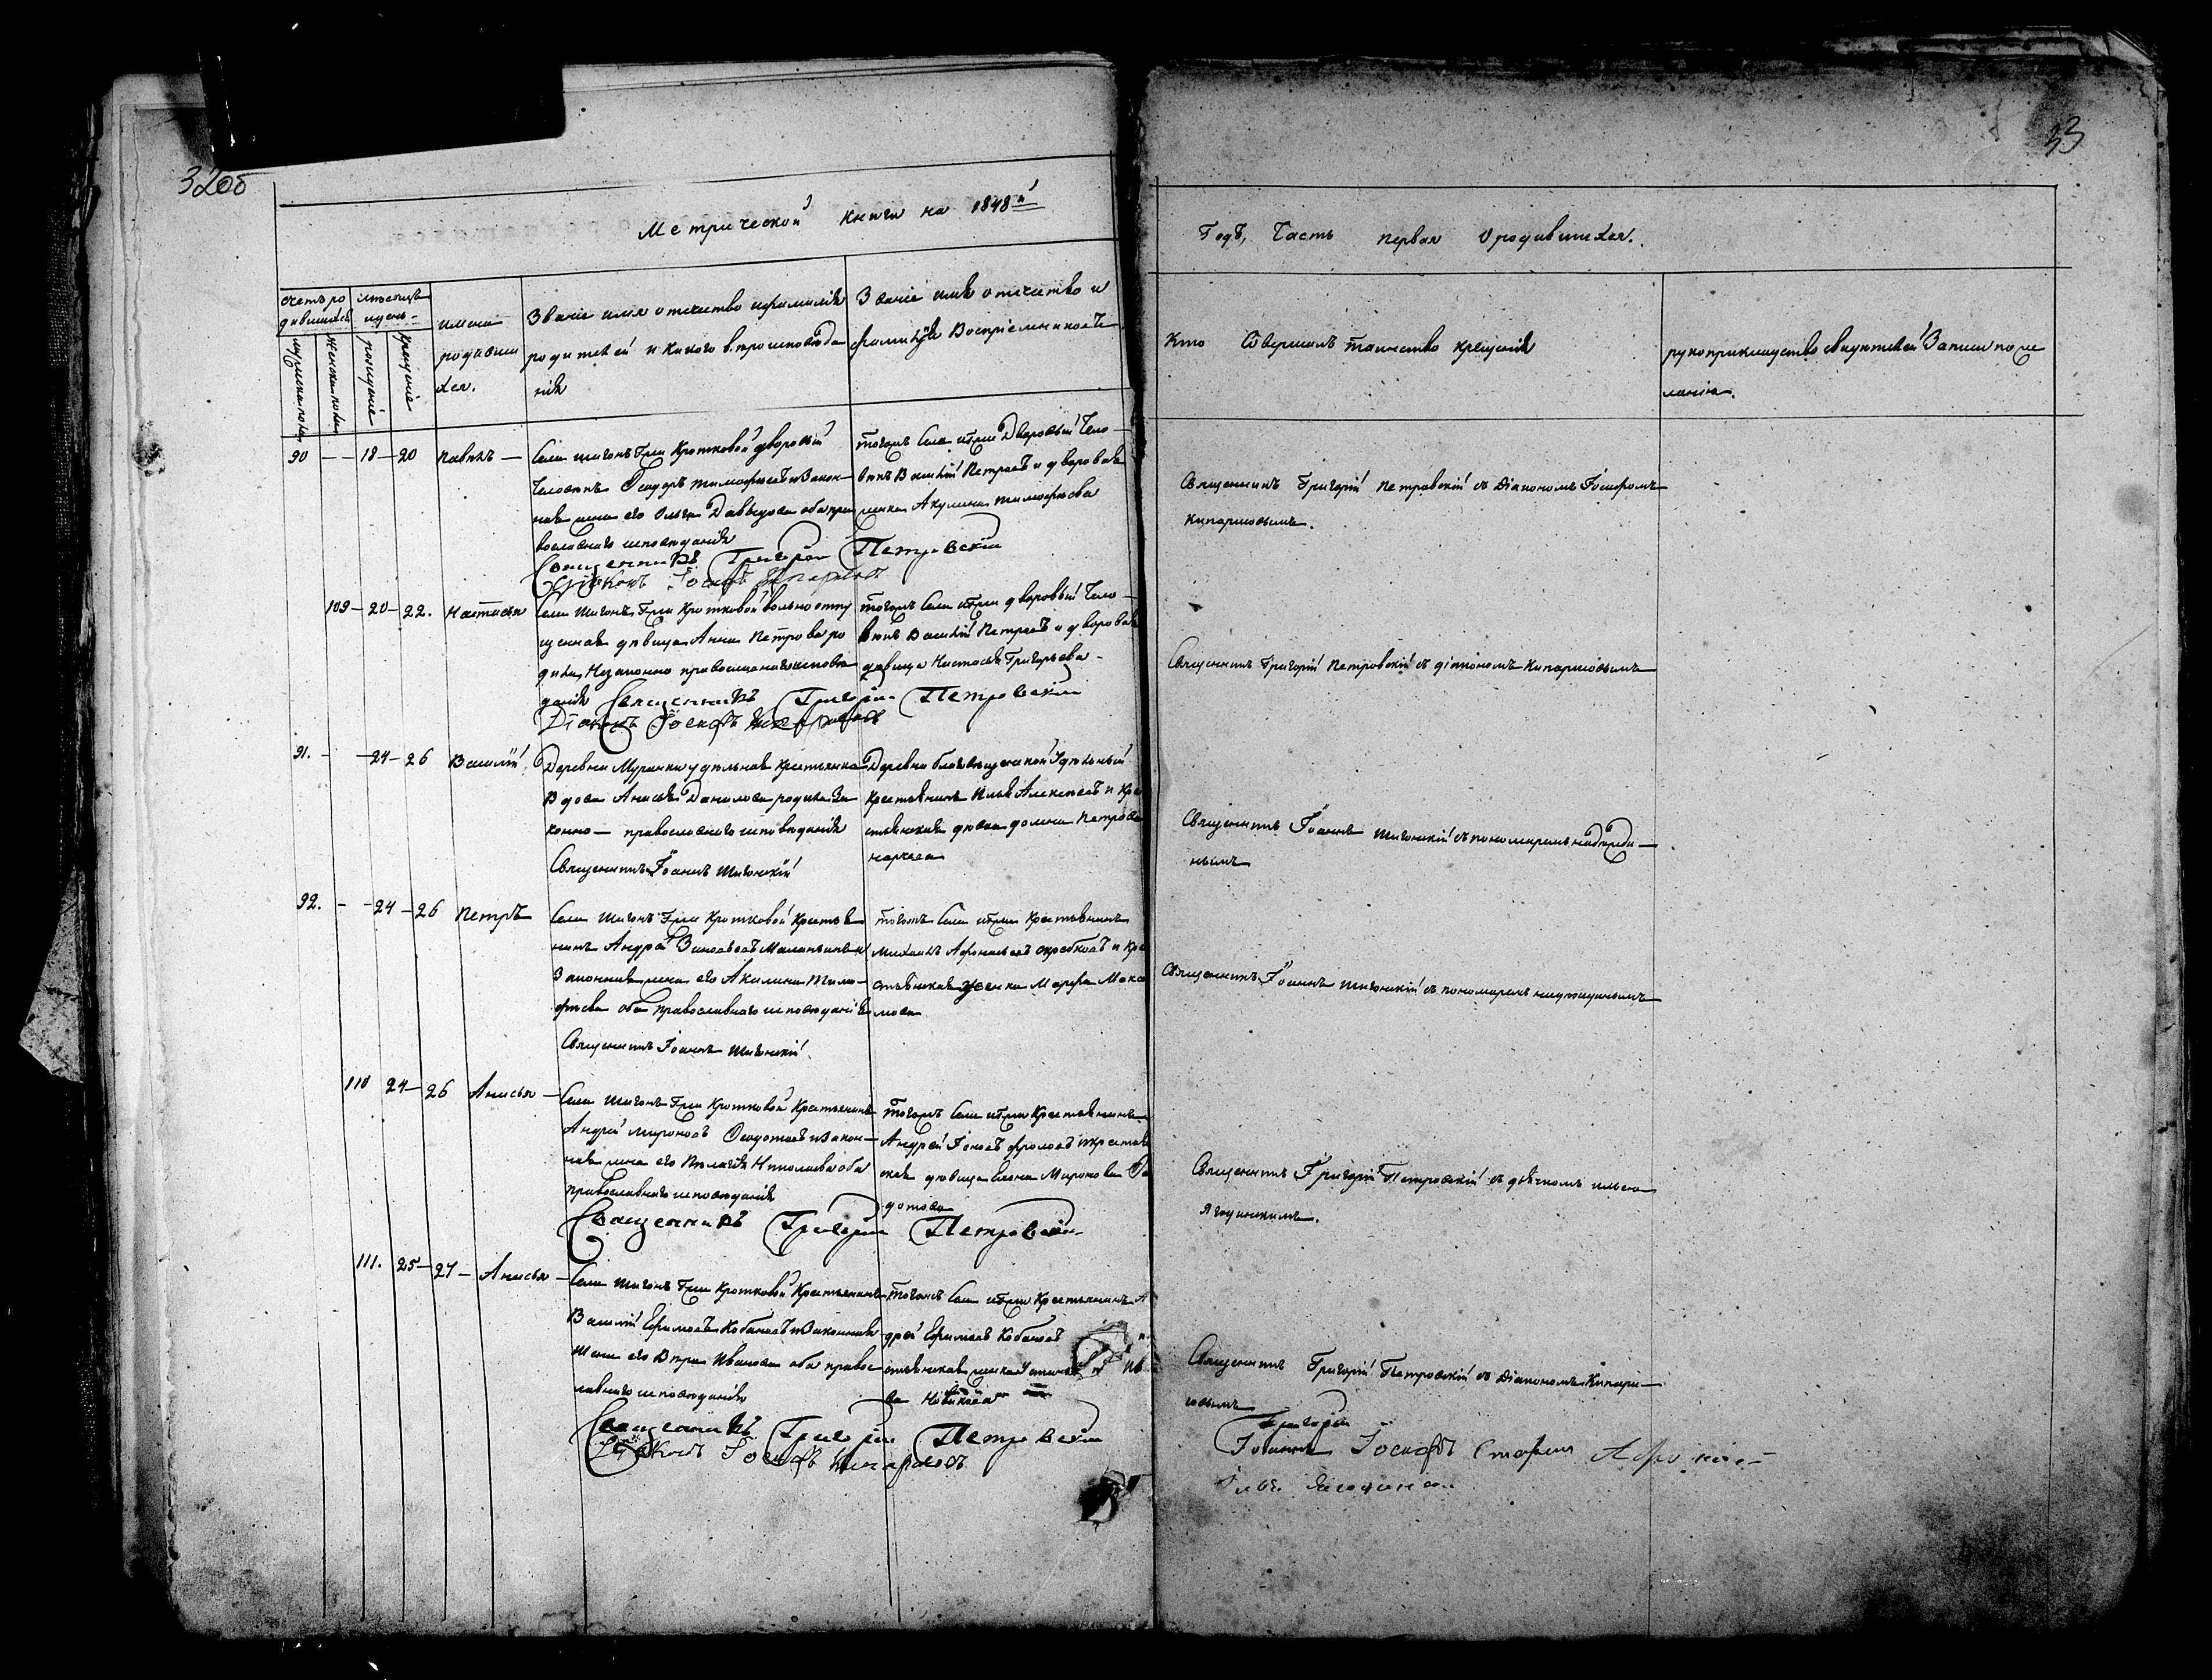 32об
33
Метрической книги на 1848й
Годъ, Часть первая о родившихся.
Счетъ ро
дившихся
мѣсяцъ
и день
имена
родивши
хся.
Званіе имя отчество и фамилія
родителей и какого вѣроисповѣда
нія
Званіе имя отчество и
фамилія Воспріемниковъ
Кто Совершалъ таинство крещенія
рукоприкладство свидѣтелей Записи по же
ланію.
мужеска пола
женска пола
рожденіе
крещеніе
90 — — 18 — 20 Павелъ —
Села Шигонъ Гжи Кротковой дворовый
человѣкъ Ѳедоръ Тимофеевъ и Закон
ная жена его Ольга Давыдова оба пра
вославнаго исповѣданія
Священникъ Григорій Петровскій
Діаконъ Іосифъ Кипарисовъ
тогожъ Села и Гжи Дворовый Чело
вѣкъ Василій Петровъ и дворовая
женка Акулина Тимофеева
Священникъ Григорій Петровскій съ Діакономъ Іосифомъ
Кипарисовымъ.
109 — 20 — 22. Настасья
Села Шигонъ Гжи Кротковой вольноотпу
щенная дѣвица Анна Петрова ро
дила Незаконно православнаго исповѣ
данія Священникъ Григорій Петровскій
Діаконъ Іосифъ Кипарисовъ
тогожъ Села и Гжи дворовый Чело
вѣкъ Василій Петровъ и дворовая
дѣвица Настасья Григорьева
Священникъ Григорій Петровскій съ діакономъ Кипарисовымъ
91. — — 24 — 26 Василій
Деревни Муранки удѣльная крестьянка
Вдова Анисья Данилова родила За
конно — православнаго исповѣданія
Священникъ Іоаннъ Шигонскій
Деревни благовѣщенской Удѣльный
Крестьянинъ Илья Алексѣевъ и Кре
стьянская дѣвка Петрова
Священникъ Іоаннъ Шигонскій съ пономаремъ
нымъ
92. — — 24 — 26 Петръ
Села Шигонъ Гжи Кротковой Крестья
нинъ Андрей Зиновьевъ и
Законная жена его Акилина Тимо
фѣева оба Православнаго исповѣданія
Священникъ Іоаннъ Шигонскій
тогожъ Села и Гжи Крестьянинъ
Михаилъ Афонасьевъ и Кре
стьянская женка Марфа
Священникъ Іоаннъ Шигонскій съ пономаремъ
110 24 — 26 Анисья —
Села Шигонъ Гжи Кротковой Крестьянинъ
Андрей Мироновъ Ѳедотовъ и Закон
ная жена его Пелагія Николаева оба
православнаго исповѣданія
Священникъ Григорій Петровскій
тогожъ Села и Гжи Крестьянинъ
Андрей Іоновъ Фроловъ и крестьян
ская дѣвица Елена Миронова Ѳе
дотова
Священникъ Григорій Петровскій съ дьячкомъ
Ягодинскимъ.
111. 25 — 27 — Анисья —
Села Шигонъ Гжи Кротковой Крестьянинъ
Василій Ефимовъ Кобановъ и Законная
жена его Вѣра Иванова оба правос
лавнаго исповѣданія
Священникъ Григорій Петровскій
Діаконъ Іосифъ Кипарисовъ
тогожъ Села и Гжи Крестьянинъ Ан
дрей Ефимовъ Кобановъ
стьянская женка
ва
Священникъ Григорій Петровскій съ Діакономъ Кипари
совымъ
Григорій
Іоаннъ Іосифъ